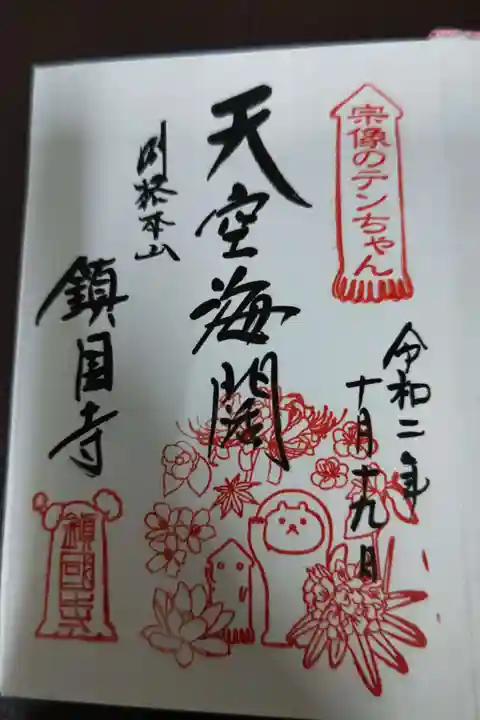 宗像のテンちゃん
令和二年
十月十九日
天空海闊
別格本山
鎮国寺
鎮國寺